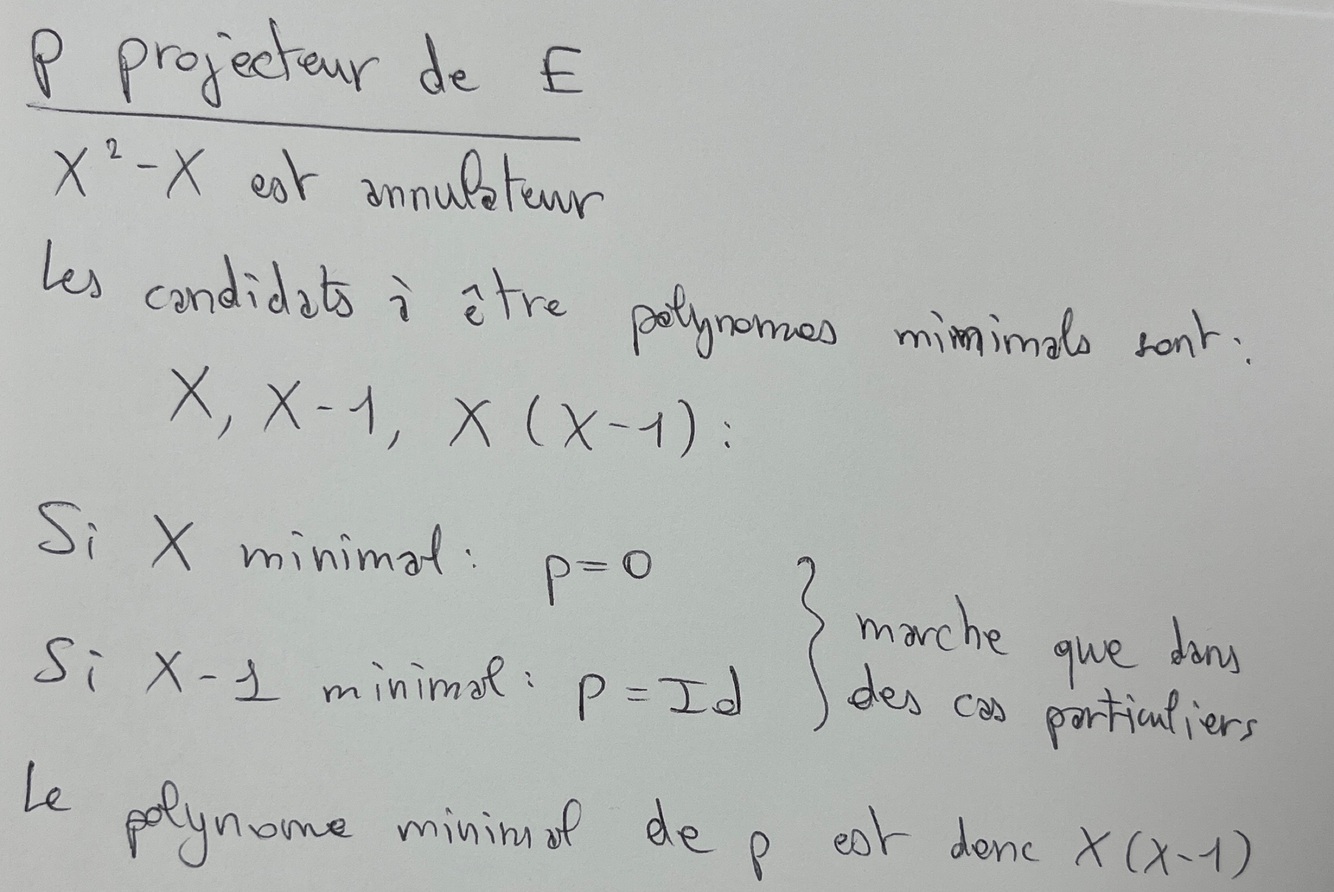 P projecteur de E
X² - X est annulateur
Les candidats à être polynomes minimals sont :
X, X-1, X(X-1) :
Si X minimal : p=0
Si X-1 minimal : p=Id
} marche que dans
des cas particuliers
Le polynome minimal de p est donc X(X-1)